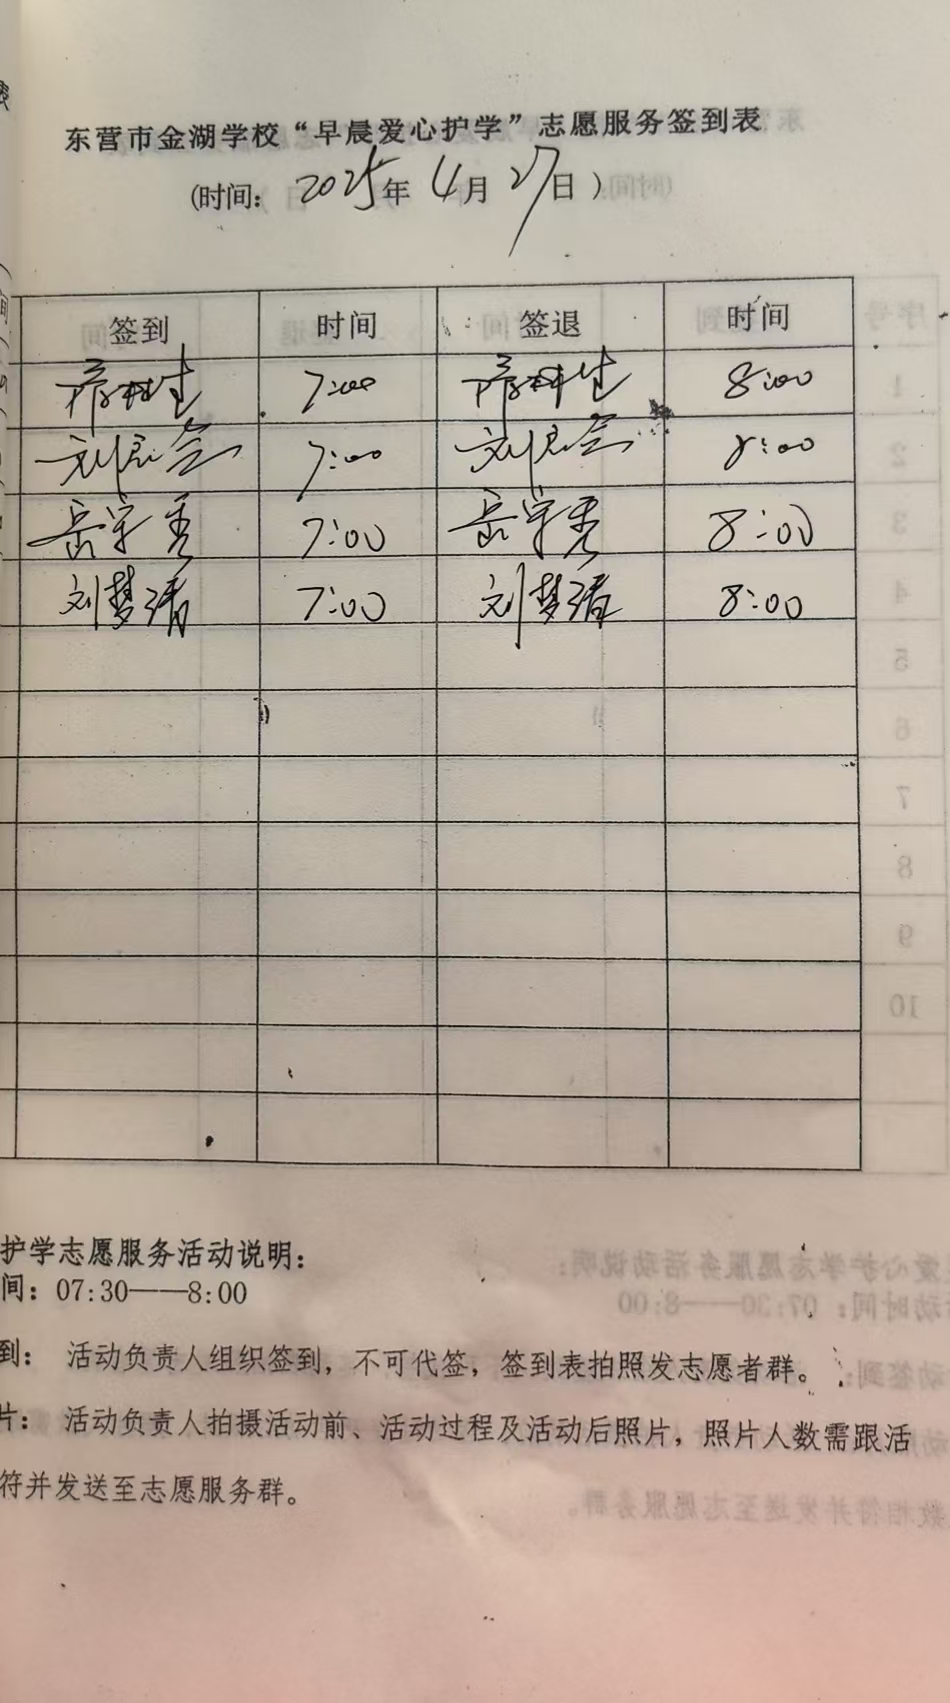 东营市金湖学校“早晨爱心护学”志愿服务签到表
(时间: 2025年 4月 27日 )
签到 时间 签退 时间
7:00 8:00
刘 7:00 刘 8:00
岳宇秀 7:00 岳宇秀 8:00
刘梦清 7:00 刘梦清 8:00
护学志愿服务活动说明:
间: 07:30——8:00
到: 活动负责人组织签到, 不可代签, 签到表拍照发志愿者群。
片: 活动负责人拍摄活动前、活动过程及活动后照片, 照片人数需跟活
符并发送至志愿服务群。